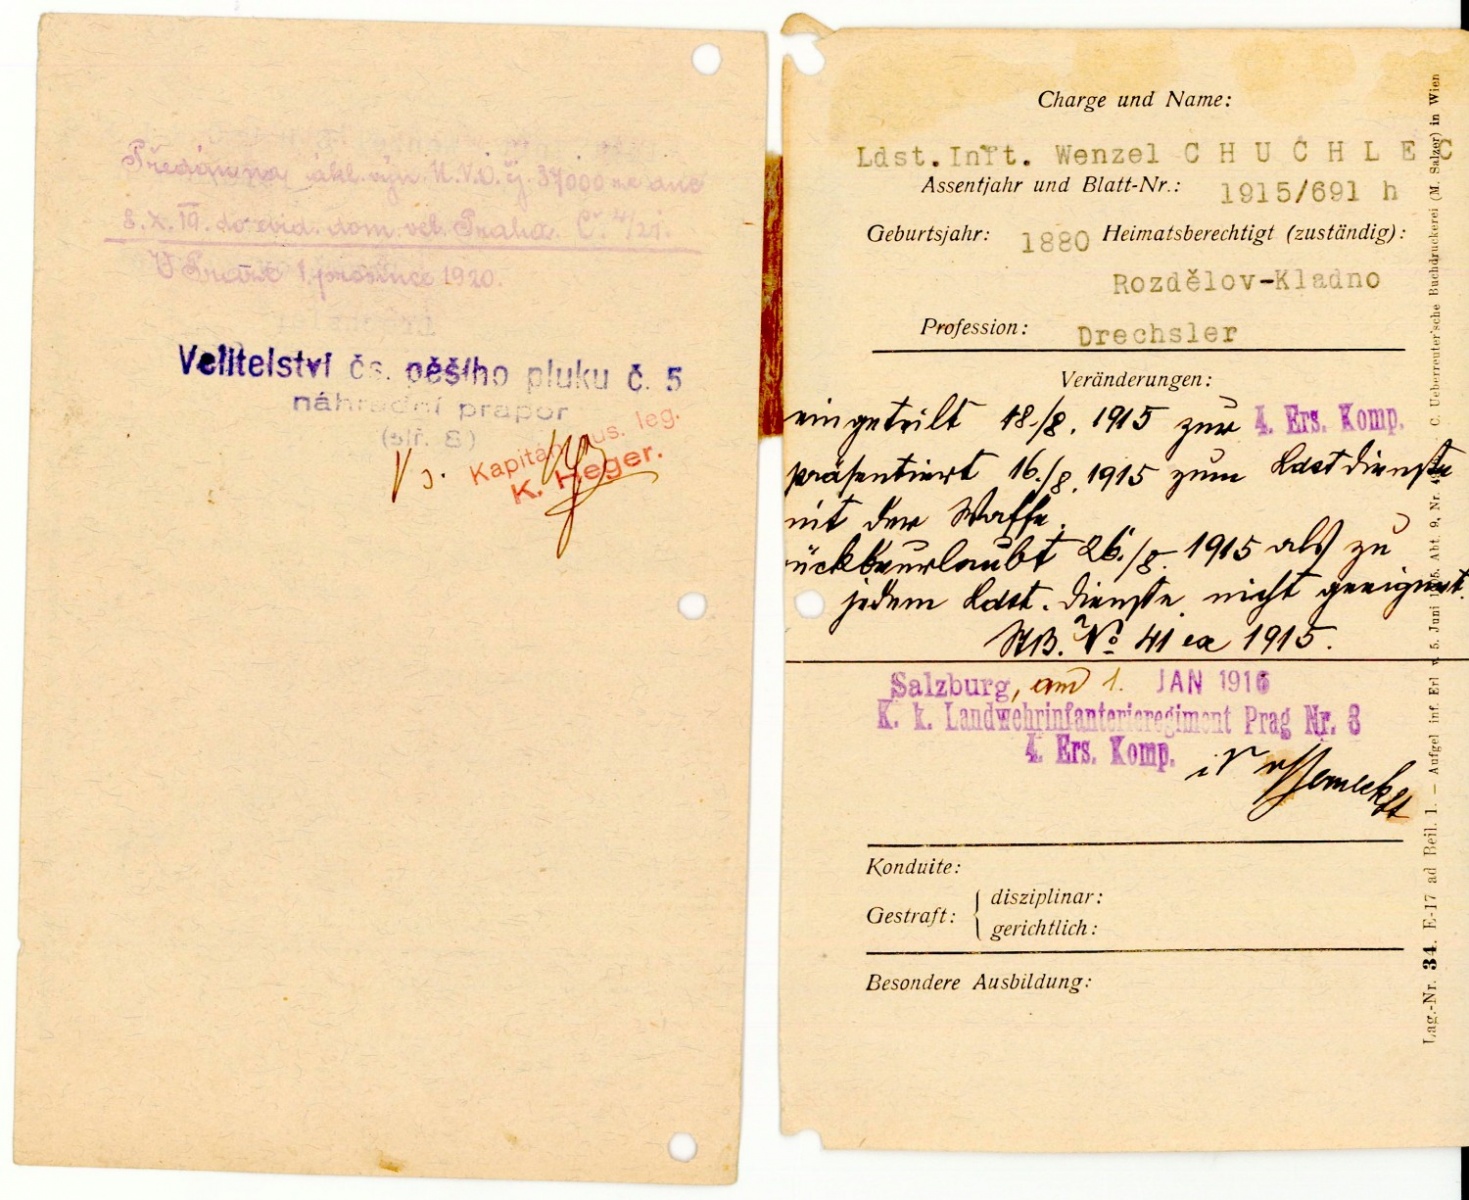 Předáno zákl. výn. M.N.O. čj. 37000 ze dne
8.X. III. do evid. dom. vel. Praha. Čř 4/21.
V Praze 1. prosince 1920.
Velitelství čs. pěšího pluku č. 5
náhradní prapor
(stř. 8)
Kapitán rus. leg.
K. Heger.
Charge und Name:
Ldst.Inft. Wenzel CHUCHLEC
Assentjahr und Blatt-Nr.: 1915/691 h
Geburtsjahr: 1880 Heimatsberechtigt (zuständig):
Rozdělov-Kladno
Profession: Drechsler
Veränderungen:
eingeteilt 18./8. 1915 zur 4. Ers. Komp.
präsentiert 16./8. 1915 zum Ldstdienste
mit der Waffe.
rückbeurlaubt 26./8. 1915 als zu
jedem Ldst. Dienste nicht geeignet.
No 41 ex 1915.
Salzburg, am 1. JAN 1916
K. k. Landwehrinfanterieregiment Prag Nr. 8
4. Ers. Komp.
Konduite:
Gestraft: disziplinar:
gerichtlich:
Besondere Ausbildung:
Lag.-Nr. 34. E-17 ad Beil. 1. — Aufgel. inf. Erl. v. 5. Juni Abt. 9, Nr. C. Ueberreuter'sche Buchdruckerei (M. Salzer) in Wien